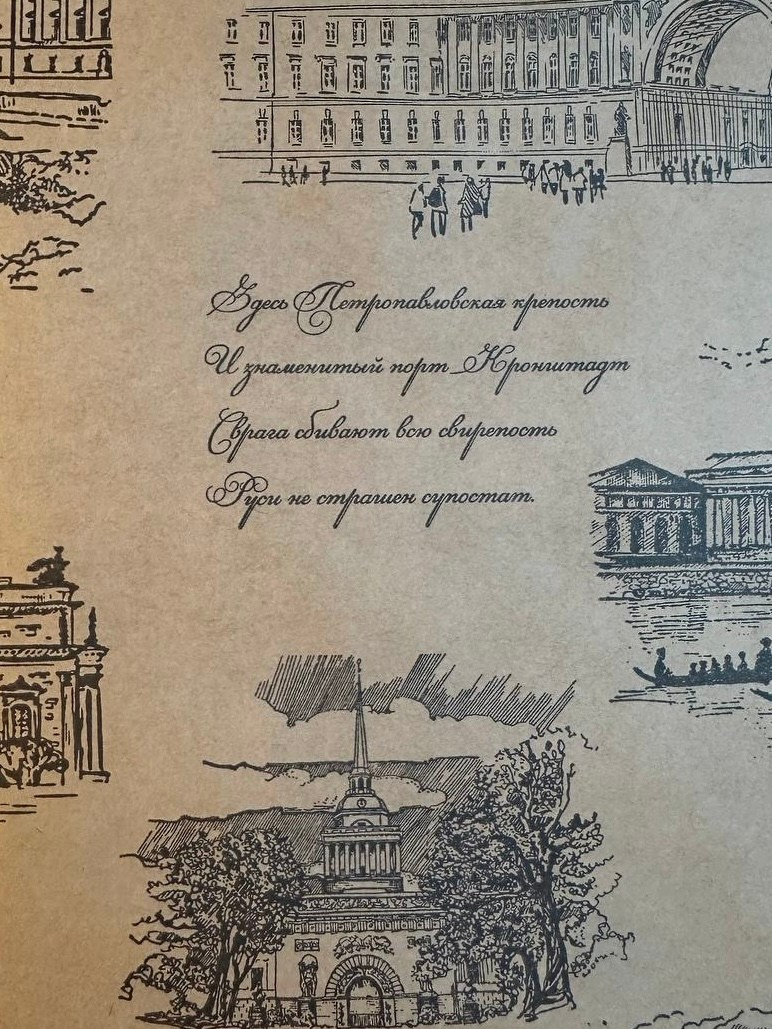 Здесь Петропавловская крепость
И знаменитый порт Кронштадт
С врага сбивают всю свирепость
Руси не страшен супостат.